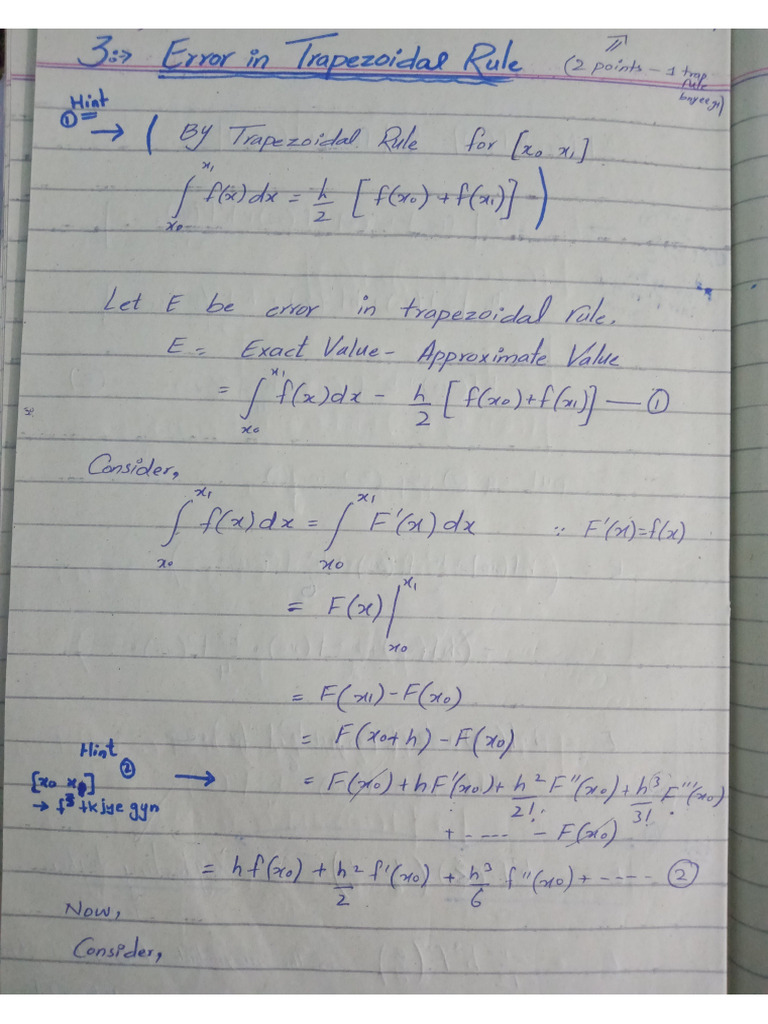 3:→ Error in Trapezoidal Rule
(2 points - 1 trap
rule
bnyeegi)
Hint
① → ( By Trapezoidal Rule for [x₀ x₁]
∫_{x₀}^{x₁} f(x)dx = h/2 [f(x₀)+f(x₁)] )
Let E be error in trapezoidal rule.
E = Exact Value - Approximate Value
= ∫_{x₀}^{x₁} f(x)dx - h/2 [f(x₀)+f(x₁)] — ①
Consider,
∫_{x₀}^{x₁} f(x)dx = ∫_{x₀}^{x₁} F'(x)dx ∵ F'(x)=f(x)
= F(x)|_{x₀}^{x₁}
= F(x₁)-F(x₀)
= F(x₀+h)-F(x₀)
Hint ②
[x₀ x₁] → = F(x₀)+hF'(x₀)+h²/2! F''(x₀)+h³/3! F'''(x₀)
→ f³ tk jye gyn
+ ---- - F(x₀)
= hf(x₀)+h²/2 f'(x₀)+h³/6 f''(x₀)+---- ②
Now,
Consider,